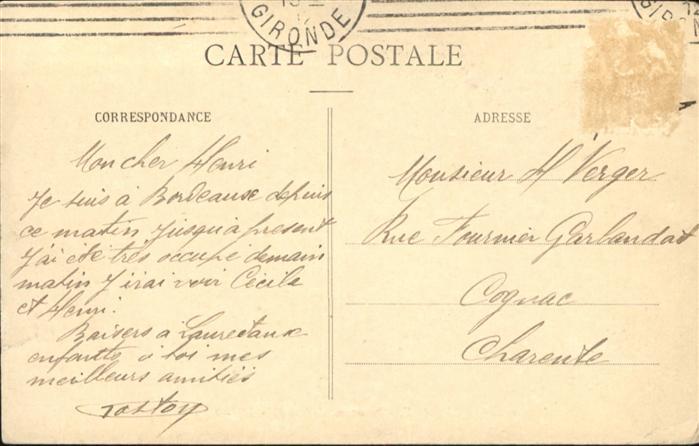 GIRONDE
CARTE POSTALE
CORRESPONDANCE
Mon cher Henri
Je suis à Bordeaux depuis
ce matin jusqu'à présent
J'ai été très occupé demain
matin J'irai voir Cécile
et Henri.
Baisers à aux
à toi mes
meilleurs amitiés
ADRESSE
Monsieur H Verger
Rue Fournier Garlandat
Cognac
Charente